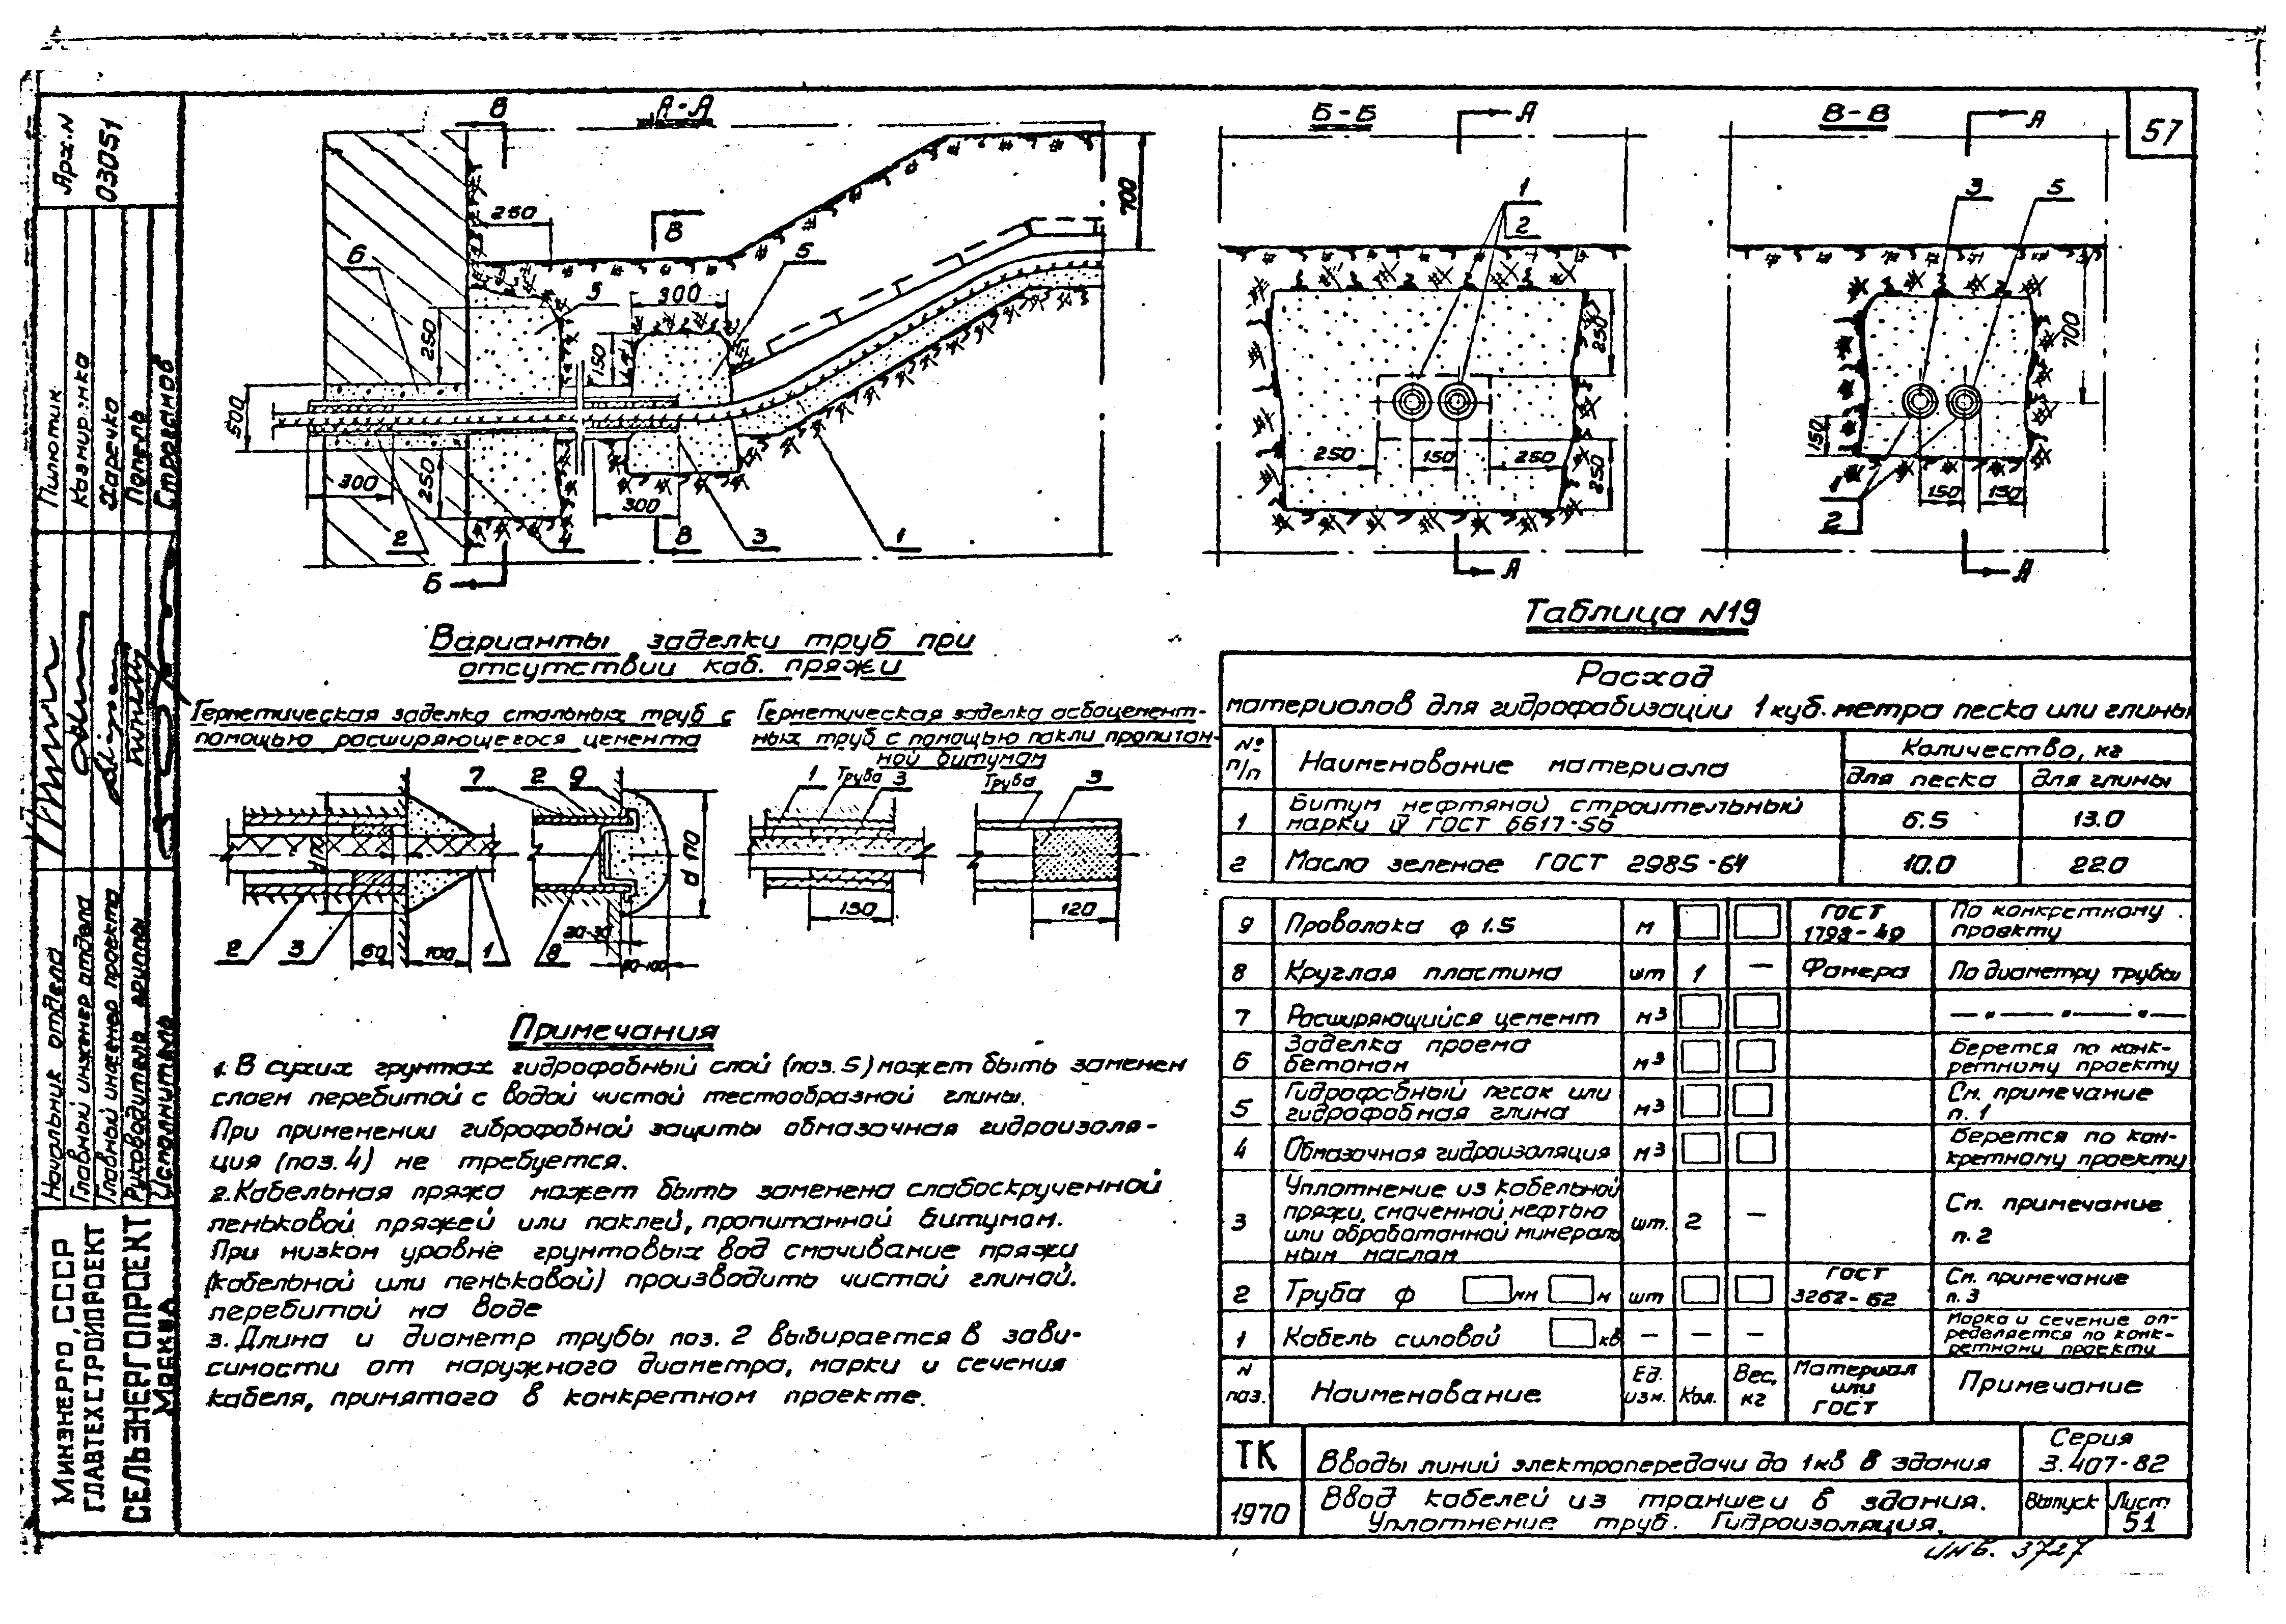 57
Арх.N
03051
Пилютик
Казмирчка
Харечко
Попель
Строганов
Начальник отдела
Главный инженер отдела
Главный инженер проекта
Руководитель группы
Исполнитель
Минэнерго, СССР
ГЛАВТЕХСТРОЙПРОЕКТ
СЕЛЬЭНЕРГОПРОЕКТ
МОСКВА
А-А
В
250
В
700
6
5
5
300
250
150
500
300
250
300
2
4
В
3
1
Б
Б-Б
А
1
2
250
250
150
250
250
А
В-В
А
3
5
700
150
1
2
150
150
А
Варианты заделки труб при
отсутствии каб. пряжи
Герметическая заделка стальных труб с
помощью расширяющегося цемента
7
2
9
d тр
d по
2
3
60
100
1
20-30
8
80-100
Герметическая заделка асбоцемент-
ных труб с помощью пакли пропитан-
ной битумом
1
Труба
3
Труба
3
150
120
Примечания
1. В сухих грунтах гидрофобный слой (поз. 5) может быть заменен
слоем перебитой с водой чистой тестообразной глины.
При применении гиброфобной защиты обмазочная гидроизоля-
ция (поз. 4) не требуется.
2. Кабельная пряжа может быть заменена слабоскрученной
пеньковой пряжей или паклей, пропитанной битумом.
При низком уровне грунтовых вод смачивание пряжи
(кабельной или пеньковой) производить чистой глиной.
перебитой на воде
3. Длина и диаметр трубы поз. 2 выбирается в зави-
симости от наружного диаметра, марки и сечения
кабеля, принятого в конкретном проекте.
Таблица N19
Расход
материалов для гидрофабизации 1 куб. метра песка или глины
№ п/п
Наименование материала
Количество, кг
для песка
для глины
1 Битум нефтяной строительный
марки IV ГОСТ 6617-56 6.5 13.0
2 Масло зеленое ГОСТ 2985-64 10.0 22.0
9 Проволока ф 1.5 м ГОСТ 1798-49 По конкретному проекту
8 Круглая пластина шт 1 — Фанера По диаметру трубы
7 Расширяющийся цемент м3 — " — " — " —
6 Заделка проема бетоном м3 Берется по конк-
ретному проекту
5 Гидрофобный песок или
гидрофобная глина м3 См. примечание п. 1
4 Обмазочная гидроизоляция м3 Берется по кон-
кретному проекту
3 Уплотнение из кабельной
пряжи, смоченной нефтью
или обработанной минераль
ным маслом шт. 2 — См. примечание п. 2
2 Труба ф мм м шт ГОСТ 3262-62 См. примечание п. 3
1 Кабель силовой кв — — — Марка и сечение оп-
ределяется по конк-
ретному проекту
N поз.
Наименование
Ед. изм.
Кол.
Вес, кг
Материал или ГОСТ
Примечание
ТК
Вводы линий электропередачи до 1 кв в здания
Серия
3.407-82
1970
Ввод кабелей из траншеи в здания.
Уплотнение труб. Гидроизоляция.
Выпуск
Лист
51
инв. 3727